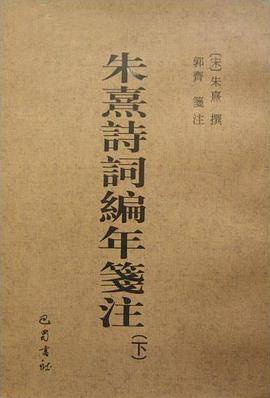 [宋]朱熹 撰
郭齊 箋注
朱熹詩詞編年箋注(下)
巴蜀書社